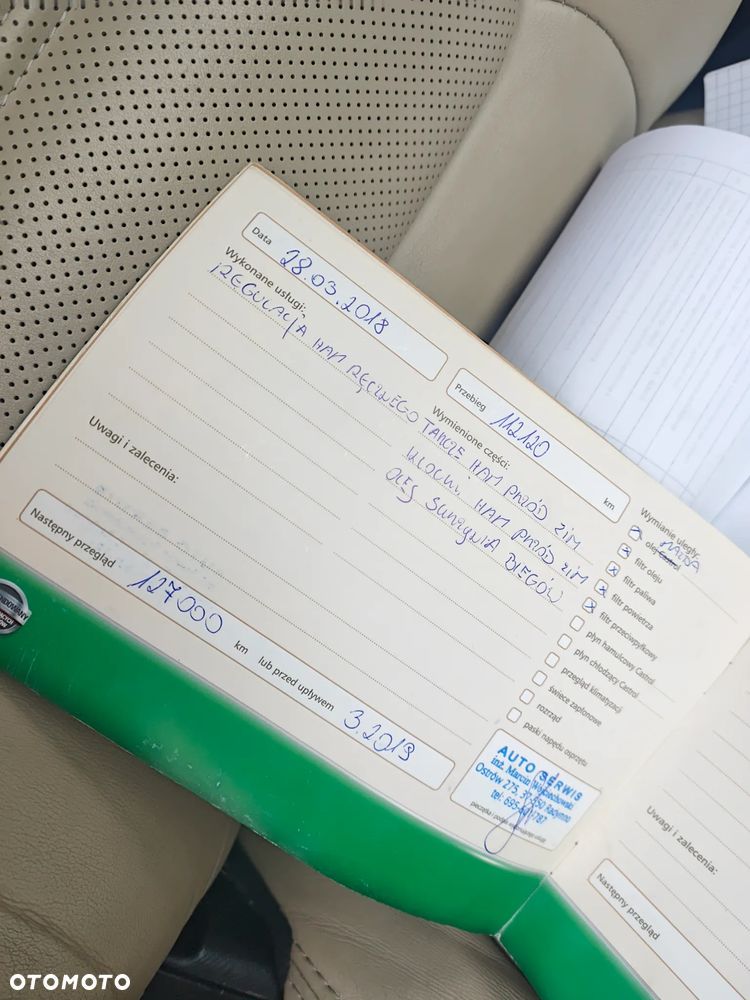 Data
28.03.2018
Przebieg
112120
km
Wykonane usługi:
REGULACJA HAM RĘCZNEGO
Wymienione części:
TARCZE HAM PRZÓD ZIM
KLOCKI HAM PRZÓD ZIM
OLEJ SKRZYNIA BIEGÓW
Wymianie uległy:
olej Castrol
filtr oleju
filtr paliwa
filtr powietrza
filtr przeciwpyłkowy
płyn hamulcowy Castrol
płyn chłodzący Castrol
przegląd klimatyzacji
świece zapłonowe
rozrząd
paski napędu osprzętu
Uwagi i zalecenia:
Następny przegląd
127000
km lub przed upływem
3.2019
AUTO SERWIS
inż. Marcin Wojciechowski
Ostrów 275, 37-550 Radymno
tel. 695-
787
Uwagi i zalecenia:
Następny przegląd
OTOMOTO